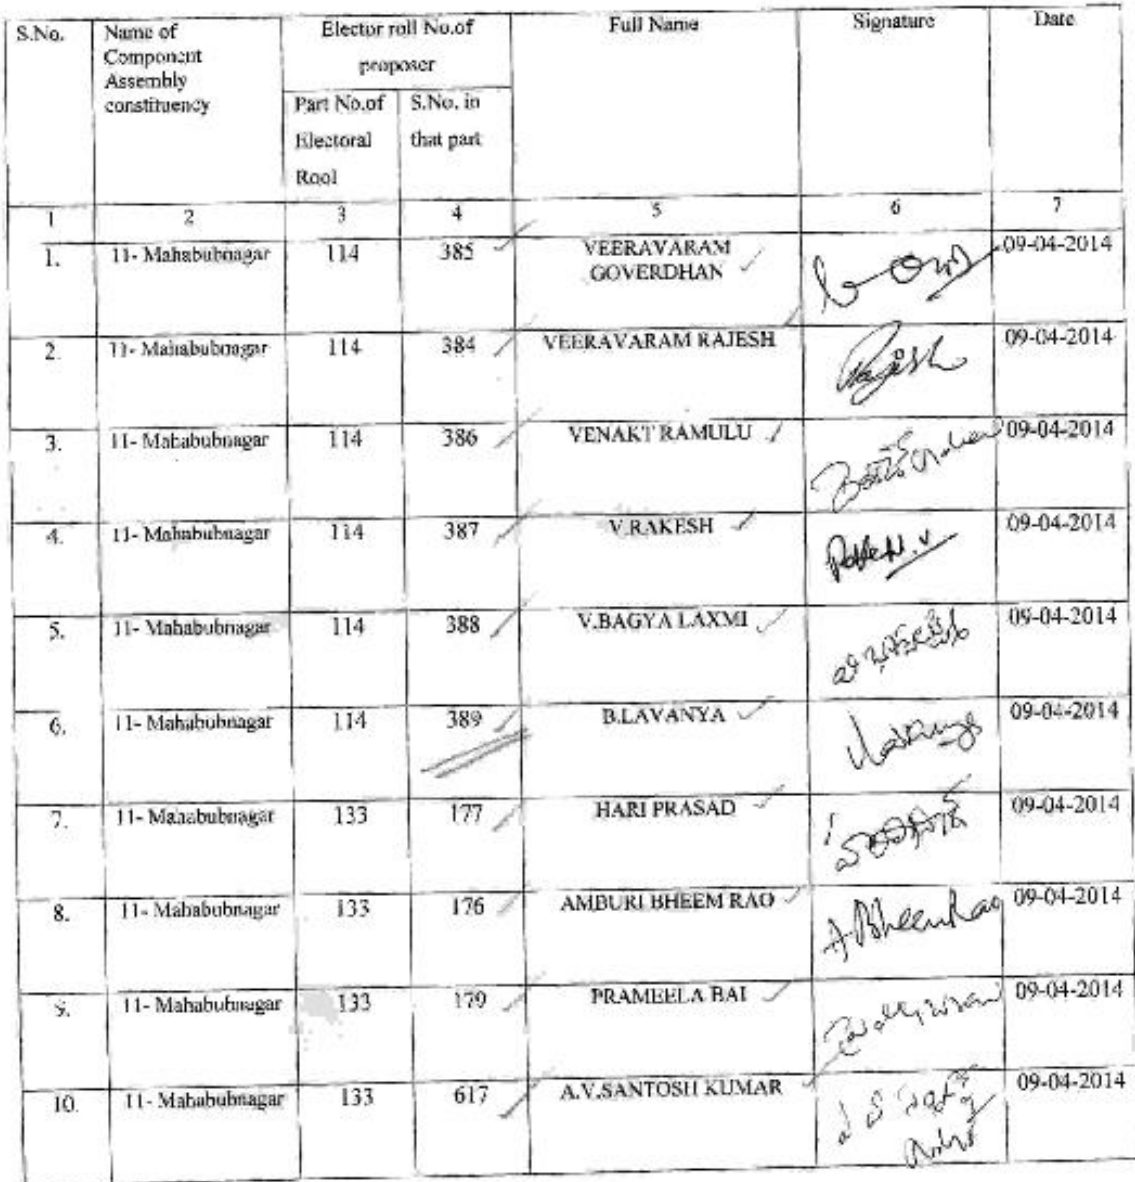 S.No. Name of Component Assembly constituency Elector roll No.of proposer Full Name Signature Date
Part No.of Electoral Rool S.No. in that part
1 2 3 4 5 6 7
1. 11- Mahabubnagar 114 385 VEERAVARAM GOVERDHAN 09-04-2014
2. 11- Mahabubnagar 114 384 VEERAVARAM RAJESH Rajesh 09-04-2014
3. 11- Mahabubnagar 114 386 VENAKT RAMULU 09-04-2014
4. 11- Mahabubnagar 114 387 V.RAKESH 09-04-2014
5. 11- Mahabubnagar 114 388 V.BAGYA LAXMI 09-04-2014
6. 11- Mahabubnagar 114 389 B.LAVANYA 09-04-2014
7. 11- Mahabubnagar 133 177 HARI PRASAD 09-04-2014
8. 11- Mahabubnagar 133 176 AMBURI BHEEM RAO A.Bheem Rao 09-04-2014
9. 11- Mahabubnagar 133 179 PRAMEELA BAI 09-04-2014
10. 11- Mahabubnagar 133 617 A.V.SANTOSH KUMAR 09-04-2014